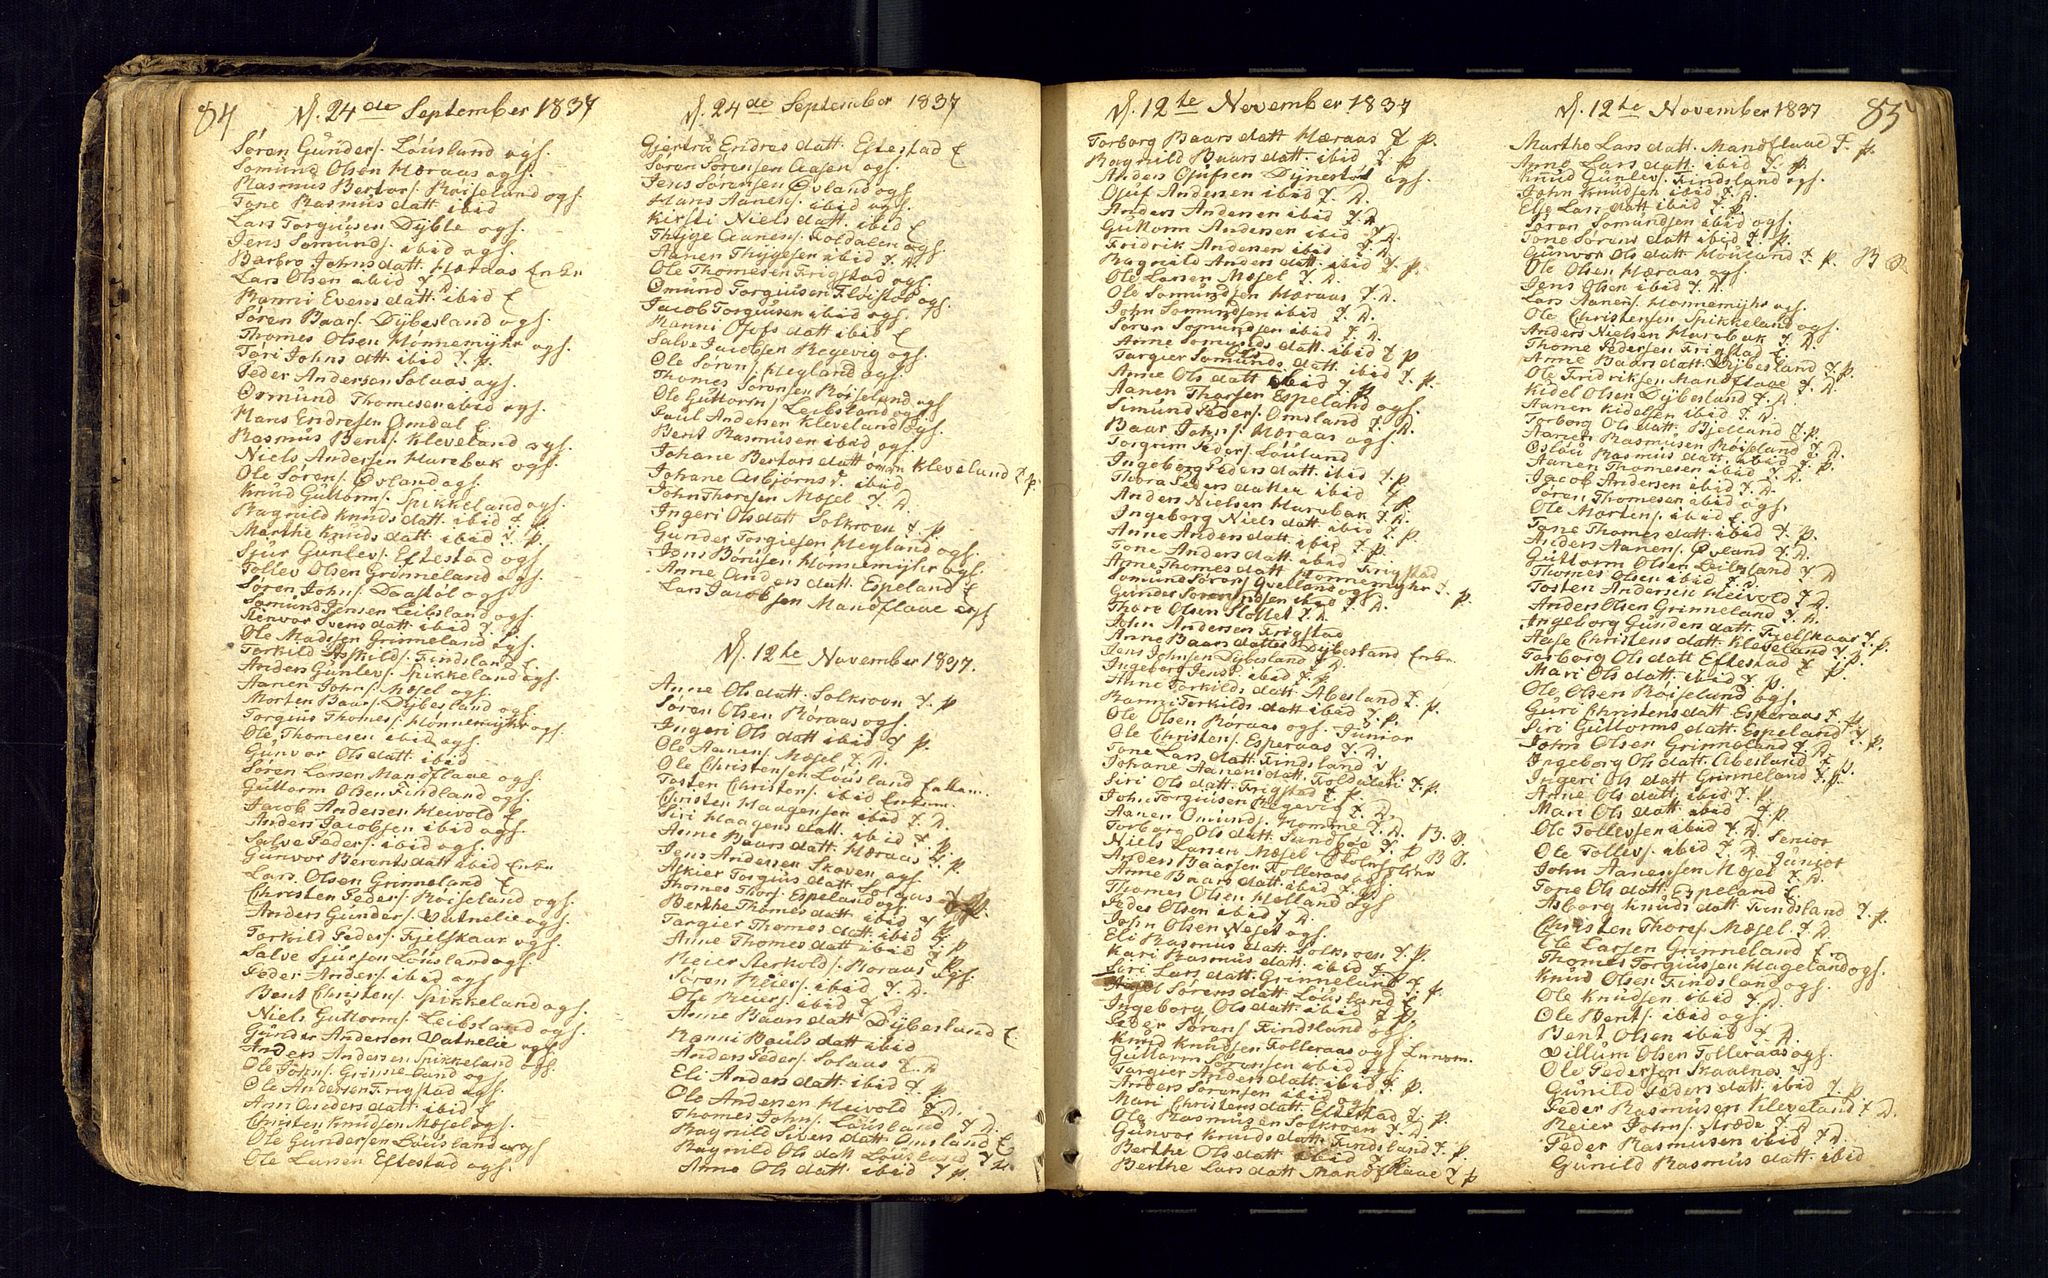 84
N. 24de September 1837
Søren Gunders. Løusland ogs.
Somund Olsen Hæraas ogs.
Rasmus Bertors. Røiseland ogs.
Tone Rasmus datt ibid
Lars Torgiusen Dyble ogs.
Jens Somunds. ibid ogs.
Barbro Johns datt. Hæraas Enke
Lars Olsen ibid
Ranni Evens datt. ibid E
Søren Baars. Dybesland ogs.
Thomes Olsen Honnemyhr ogs.
Tori Johns dtt. ibid T. P.
Peder Andersen Solaas ogs.
Osmund Thomesen ibid ogs.
Hans Endresen Omdal E.
Rasmus Bents. Kleveland ogs.
Niels Andersen Harebak ogs.
Ole Sørens. Øvland ogs.
Knud Guttorms. Spikkeland ogs.
Ragnild Knuds datt. ibid T. P.
Marthe Knuds datt ibid T. P.
Sjur Gunlevs. Eftestad ogs
Tollev Olsen Grinneland ogs.
Søren Johns. Daastøl ogs.
Somund Jensen Leibsland ogs.
Stenvor Svens datt. ibid T. P.
Ole Madssen Grinneland ogs.
Torkild Askilds. Findsland E.
Anders Gunlevs. Spikkeland ogs.
Aanen Johns. Møsel ogs.
Morten Baars. Dybesland ogs.
Torgius Thomes. Honnemyhr ogs.
Ole Thomesen ibid ogs.
Gunvor Ols datt ibid
Søren Larsen Mandflaae ogs.
Guttorm Olsen Findland ogs.
Jacob Andersen Heivold E
Anders Jacobsen ibid ogs.
Salve Peders. ibid ogs.
Gunvor Berents datt ibid Enke
Lars Olsen Grinneland E
Christen Peders. Røiseland ogs.
Anders Gunders. Vatnelie ogs.
Torkild Peders. Fjelskaar ogs.
Salve Sjursen Løusland ogs.
Peder Anders. ibid ogs
Bent Christens. Spikkeland ogs.
Niels Guttorms. Leibsland ogs.
Gunder Andersen Vatnelie ogs
Anders Andersen Spikkeland ogs
Ole Johns. Grinneland ogs
Ole Andersen Frigstad ogs.
Ann Anders datt. ibid E
Christen Knudsen Møsel ogs.
Ole Gundersen Løusland ogs
Ole Larsen Eftestad ogs.
N. 24de September 1837
Gjertru Endres datt. Eftestad E
Søren Sørensen Aasen ogs.
Jens Sørensen Øvland ogs
Hans Aanens. ibid ogs.
Kirsti Niels datt. ibid E
Thyge Aanens. Foldalen ogs.
Aanen Thygesen ibid T. D.
Ole Thomesen Frigstad ogs.
Omund Torgiusen Fløistøl ogs.
Jacob Torgiusen ibid ogs.
Hanni Olofs datt ibid E
Salve Jacobsen Regevig ogs.
Ole Sørens. Hegland ogs.
Thomes Sørensen Røiseland ogs
Ole Guttorms. Leibsland ogs.
Paul Andersen Kleveland ogs.
Bent Rasmusen ibid ogs.
Johane Bertors datt Kleveland T. P.
Johane Asbjørns d. ibid
John Thorsen Møsel T. D.
Ingeri Ols datt Solkroen T. P
Gunder Torgiesen Hegland ogs.
Jens Børusen Honnemyhr ogs.
Anne Anders datt. Espeland E
Lars Jacobsen Mandflaae ogs
N. 12te November 1837.
Anne Ols datt. Solkroen T. P
Søren Olsen Røraas ogs.
Ingeri Ols datt ibid T. P.
Ole Aanens. Møsel T. D.
Ole Christensen Løusland Enkem.
Tosten Christens. ibid Enkem.
Christen Haagensen ibid T. D.
Siri Haagens datt. ibid T. P.
Anne Baars datt. Hæraas T. P.
Jens Andersen Skoven ogs.
Askier Torgius datt Solaas T. P.
Thomes Thors. Espeland ogs.
Berthe Thomes datt ibid T. P
Targier Thomes datt. ibid T. P
Anne Thomes datt ibid T. P
Reier Aerkolds. Røraas ogs.
Søren Reiers. ibid T. D.
Ole Reiers. ibid T. D
Anne Baars datt. Dybesland E
Ranni Pauls datt ibid
Anders Peders. Solaas T. D
Eli Anders datt. ibid T. P
Ole Andersen Heivold T. D.
Thomes Johns. Løusland T. D.
Ragnild Sivers datt Omsland E
Ragnild Ols datt Løusland T. P.
Anne Ols datt. ibid T. P.
N. 12te November 1837
Torborg Baars datt Hæraas T. P.
Ragnild Baars datt. ibid T. P
Anders Olufsen Dynestøl ogs.
Oluf Andersen ibid T. D.
Anders Andersen ibid T. D.
Guttorm Andersen ibid T. D.
Fridrik Andersen ibid T. D.
Ragnild Anders datt. ibid T. P.
Ole Larsen Møsel T. D.
Ole Somundsen Hæraas T. D.
John Somundsen ibid T. D.
Søren Somundsen ibid T. D.
Anne Somunds datt. ibid T. P
Targier Somunds datt. ibid T. P.
Anne Ols datt ibid T. P
Aanen Thorsen Espeland ogs.
Simund Peders. Omsland T. D.
Baar Johns. Hæraas ogs
Torgrim Peders. Løuland
Ingeborg Peders datt. ibid T. P.
Thora Peders datter ibid T. P
Anders Nielsen Harebak T. D.
Ingeborg Niels datt. ibid T. P.
Anne Anders datt. ibid T. P.
Tone Anders datt. ibid
Anne Thomes datt. Frigstad
Somund Sørens. Honnemyhr T. P.
Gunder Sørensen ibid T. D.
Thore Olsen Slottet T. D.
John Andersen Frigstad
Anne Baars datter Dybesland Enke.
Jens Johnsen Dybesland T. D.
Ingeborg Jensd. ibid T. P.
Anne Torkilds datt. Abesland T. P.
Ranni Torkilds datt. ibid T. P.
Ole Olsen Røraas ogs. Junior
Ole Christens. Esperaas T. D.
Tone Lars datt. Findsland T. P.
Johane Aanens datt. Foldalen T. P.
Siri Ols datt. Frigstad T. P.
John Torgiusen Regevig
Aanen Omunds. Homme T. D. B. S.
Torborg Ols datt. Sundføe T. P. B. S.
Niels Larsen Møsel
Anders Baarsen Tolleraas ogs.
Anne Baars datt. ibid T. P.
Thomes Olsen Holland ogs
Peder Olsen ibid T. D.
John Olsen Neset ogs.
Eli Rasmus datt. Solkroen T. P.
Kari Rasmus datt. ibid T. P.
Siri Lars datt. Grinneland T. P
Sørens datt. Løusland E
Ingeborg Ols datt. ibid T. P.
Peder Sørens. Findsland ogs.
Knud Knudsen Tolleraas ogs
Guttorm Sørensen ibid ogs.
Targier Anders datt. ibid T. P.
Anders Sørensen ibid ogs.
Mari Christens datt. Eftestad T. P.
Ole Rasmusen Solkroen T. D
Gunvor Knuds datt. Findsland T. P.
Berthe Ols datt ibid T. P.
Berthe Lars datt Mandflaae T. P
85
N. 12te November 1837
Marthe Lars datt. Mandflaae T. P.
Anne Lars datt. ibid T. P.
Knud Gunlevs. Findsland ogs.
John Knudsen ibid T. D.
Else Lars datt ibid T. P
Søren Somundsen ibid ogs.
Tone Sørens datt ibid T. P.
Gunvor Ols datt Houland T. P. B S.
Ole Olsen Hæraas ogs.
Jens Olsen ibid T. D.
Lars Aanens. Honnemyhr ogs.
Ole Christensen Spikkeland ogs.
Anders Nielsen Harebak T. D.
Thome Pedersen Frigstad E.
Anne Baars datt. Dybesland T. P.
Ole Fridriksen Mandflaae T. D.
Kidel Olsen Dybesland T. D.
Aanen Kidelsen ibid T. D.
Torborg Ols datt. Fjelland T. P.
Aanen Rasmusen Røiseland T. D.
Oslau Rasmus datt ibid T. P.
Aanen Thomesen ibid T. D.
Jacob Andersen ibid T. D.
Søren Thomesen ibid ogs.
Ole Mortens. ibid E
Tone Thomes datt ibid T. P.
Anders Aanens. Øvland T. D.
Guttorm Olsen Leibsland T. D
Thomes Olsen ibid T. D.
Tosten Andersen Heivold T. D.
Anders Olsen Grinneland T. D.
Ingeborg Gunders datt. Fjelskaar T. P.
Aase Christens datt. Kleveland T. P.
Torborg Ols datt Eftestad T. P.
Mari Ols datt. ibid T. P.
Ole Olsen Røiseland ogs.
Guri Christens datt Esperaas T. P.
Siri Guttorms datt. Espeland T. P.
John Olsen Grinneland T. D.
Ingeborg Ols datt. Abesland T. P.
Ingeri Ols datt Grinneland T. P.
Anne Ols datt. ibid T. P.
Mari Ols datt. ibid T. P
Ole Tollevsen ibid T. D. Senior
Ole Tollevs. ibid T. D. Junior
John Aanensen Møsel T. D.
Tone Ols datt. Espeland E
Asborg Knuds datt Findsland T. P.
Christen Thores. Møsel T. D
Ole Larsen Grinneland E.
Thomes Torgiussen Hageland ogs.
Knud Olsen Findsland ogs.
Ole Knudsen ibid T. D.
Ole Bents. ibid ogs.
Bent Olsen ibid T. D.
Villum Olsen Tolleraas ogs.
Ole Pedersen Skaalnes
Gunild Peders datt. ibid T. P.
Peder Rasmusen Kleveland T. D.
Reier Johns. Stræde T. D
Peder Rasmusen ibid T. D.
Gunild Rasmus datt. ibid